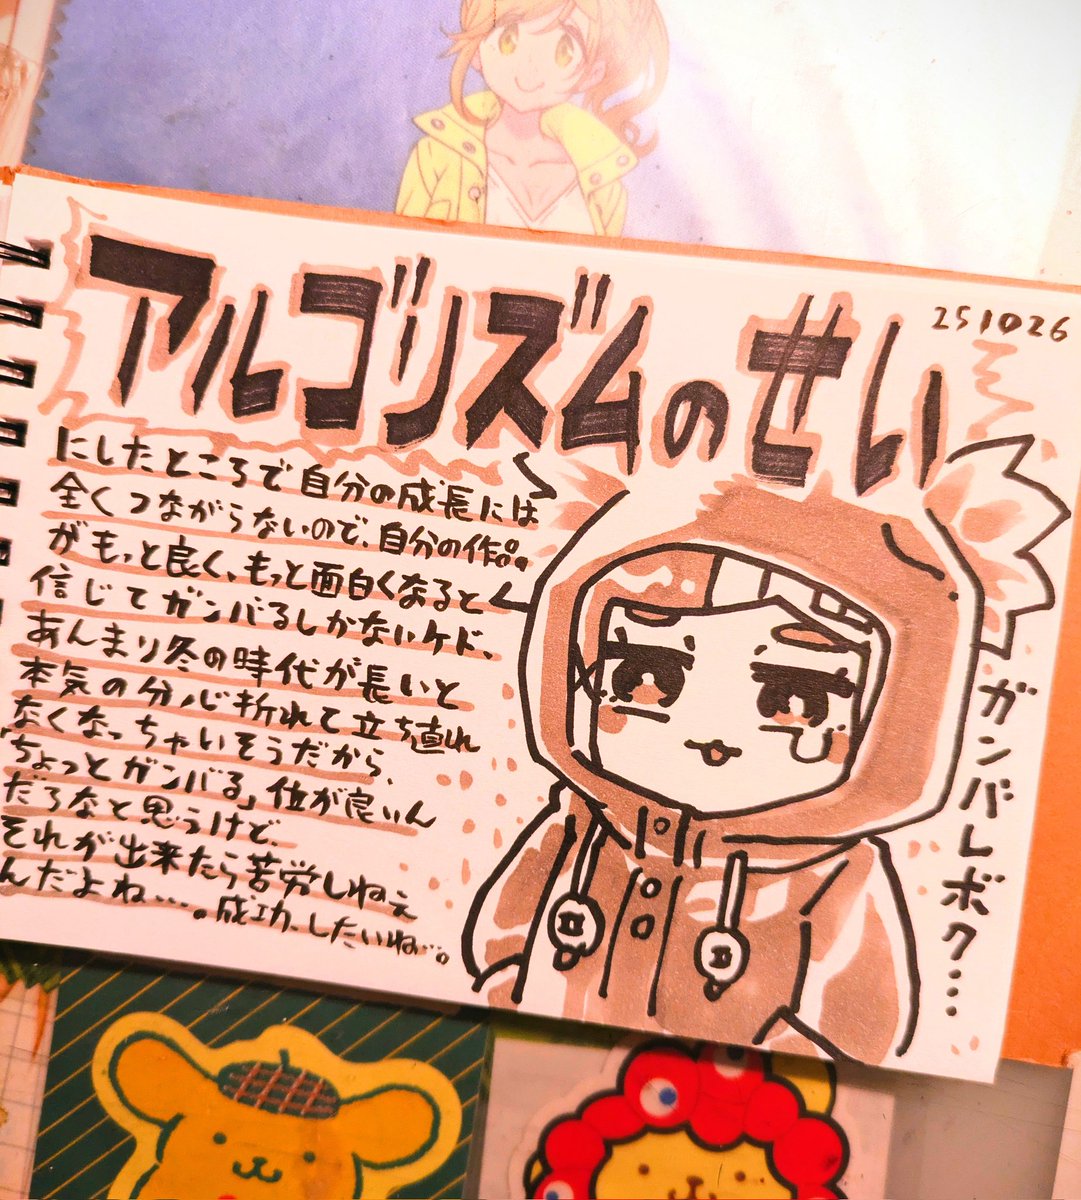 アルゴリズムのせい
251026
にしたところで自分の成長には
全くつながらないので、自分の作品
がもっと良く、もっと面白くなると
信じてガンバるしかないケド、
あんまり冬の時代が長いと
本気の分心折れて立ち直れ
なくなっちゃいそうだから、
「ちょっとガンバる」位が良いん
だろなと思うけど、
それが出来たら苦労しねぇ
んだよね…。成功、したいね…。
ガンバレボク…